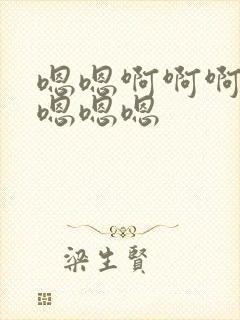 嗯嗯啊啊啊
嗯嗯嗯
梁生賢